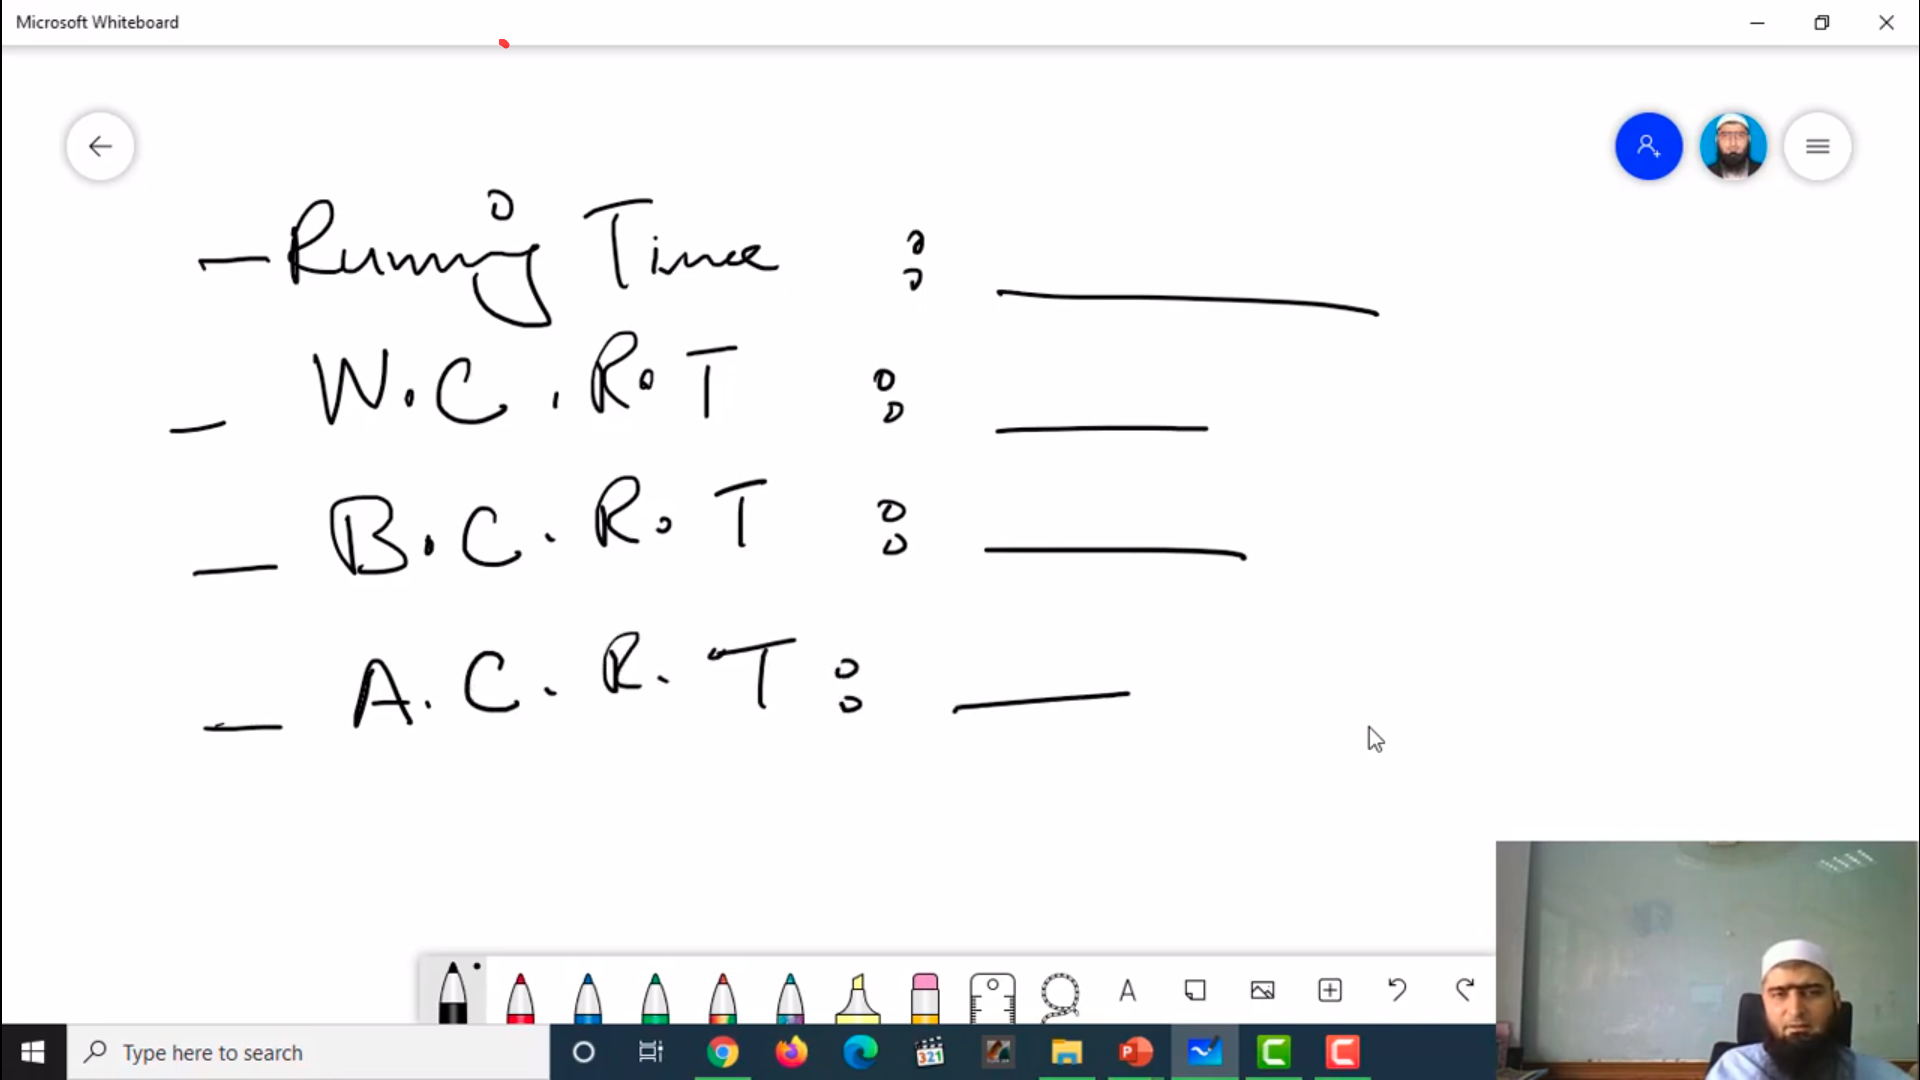 Microsoft Whiteboard
– Running Time :
– W.C.R.T :
– B.C.R.T :
– A.C.R.T :
A
321
P
C
C
Type here to search